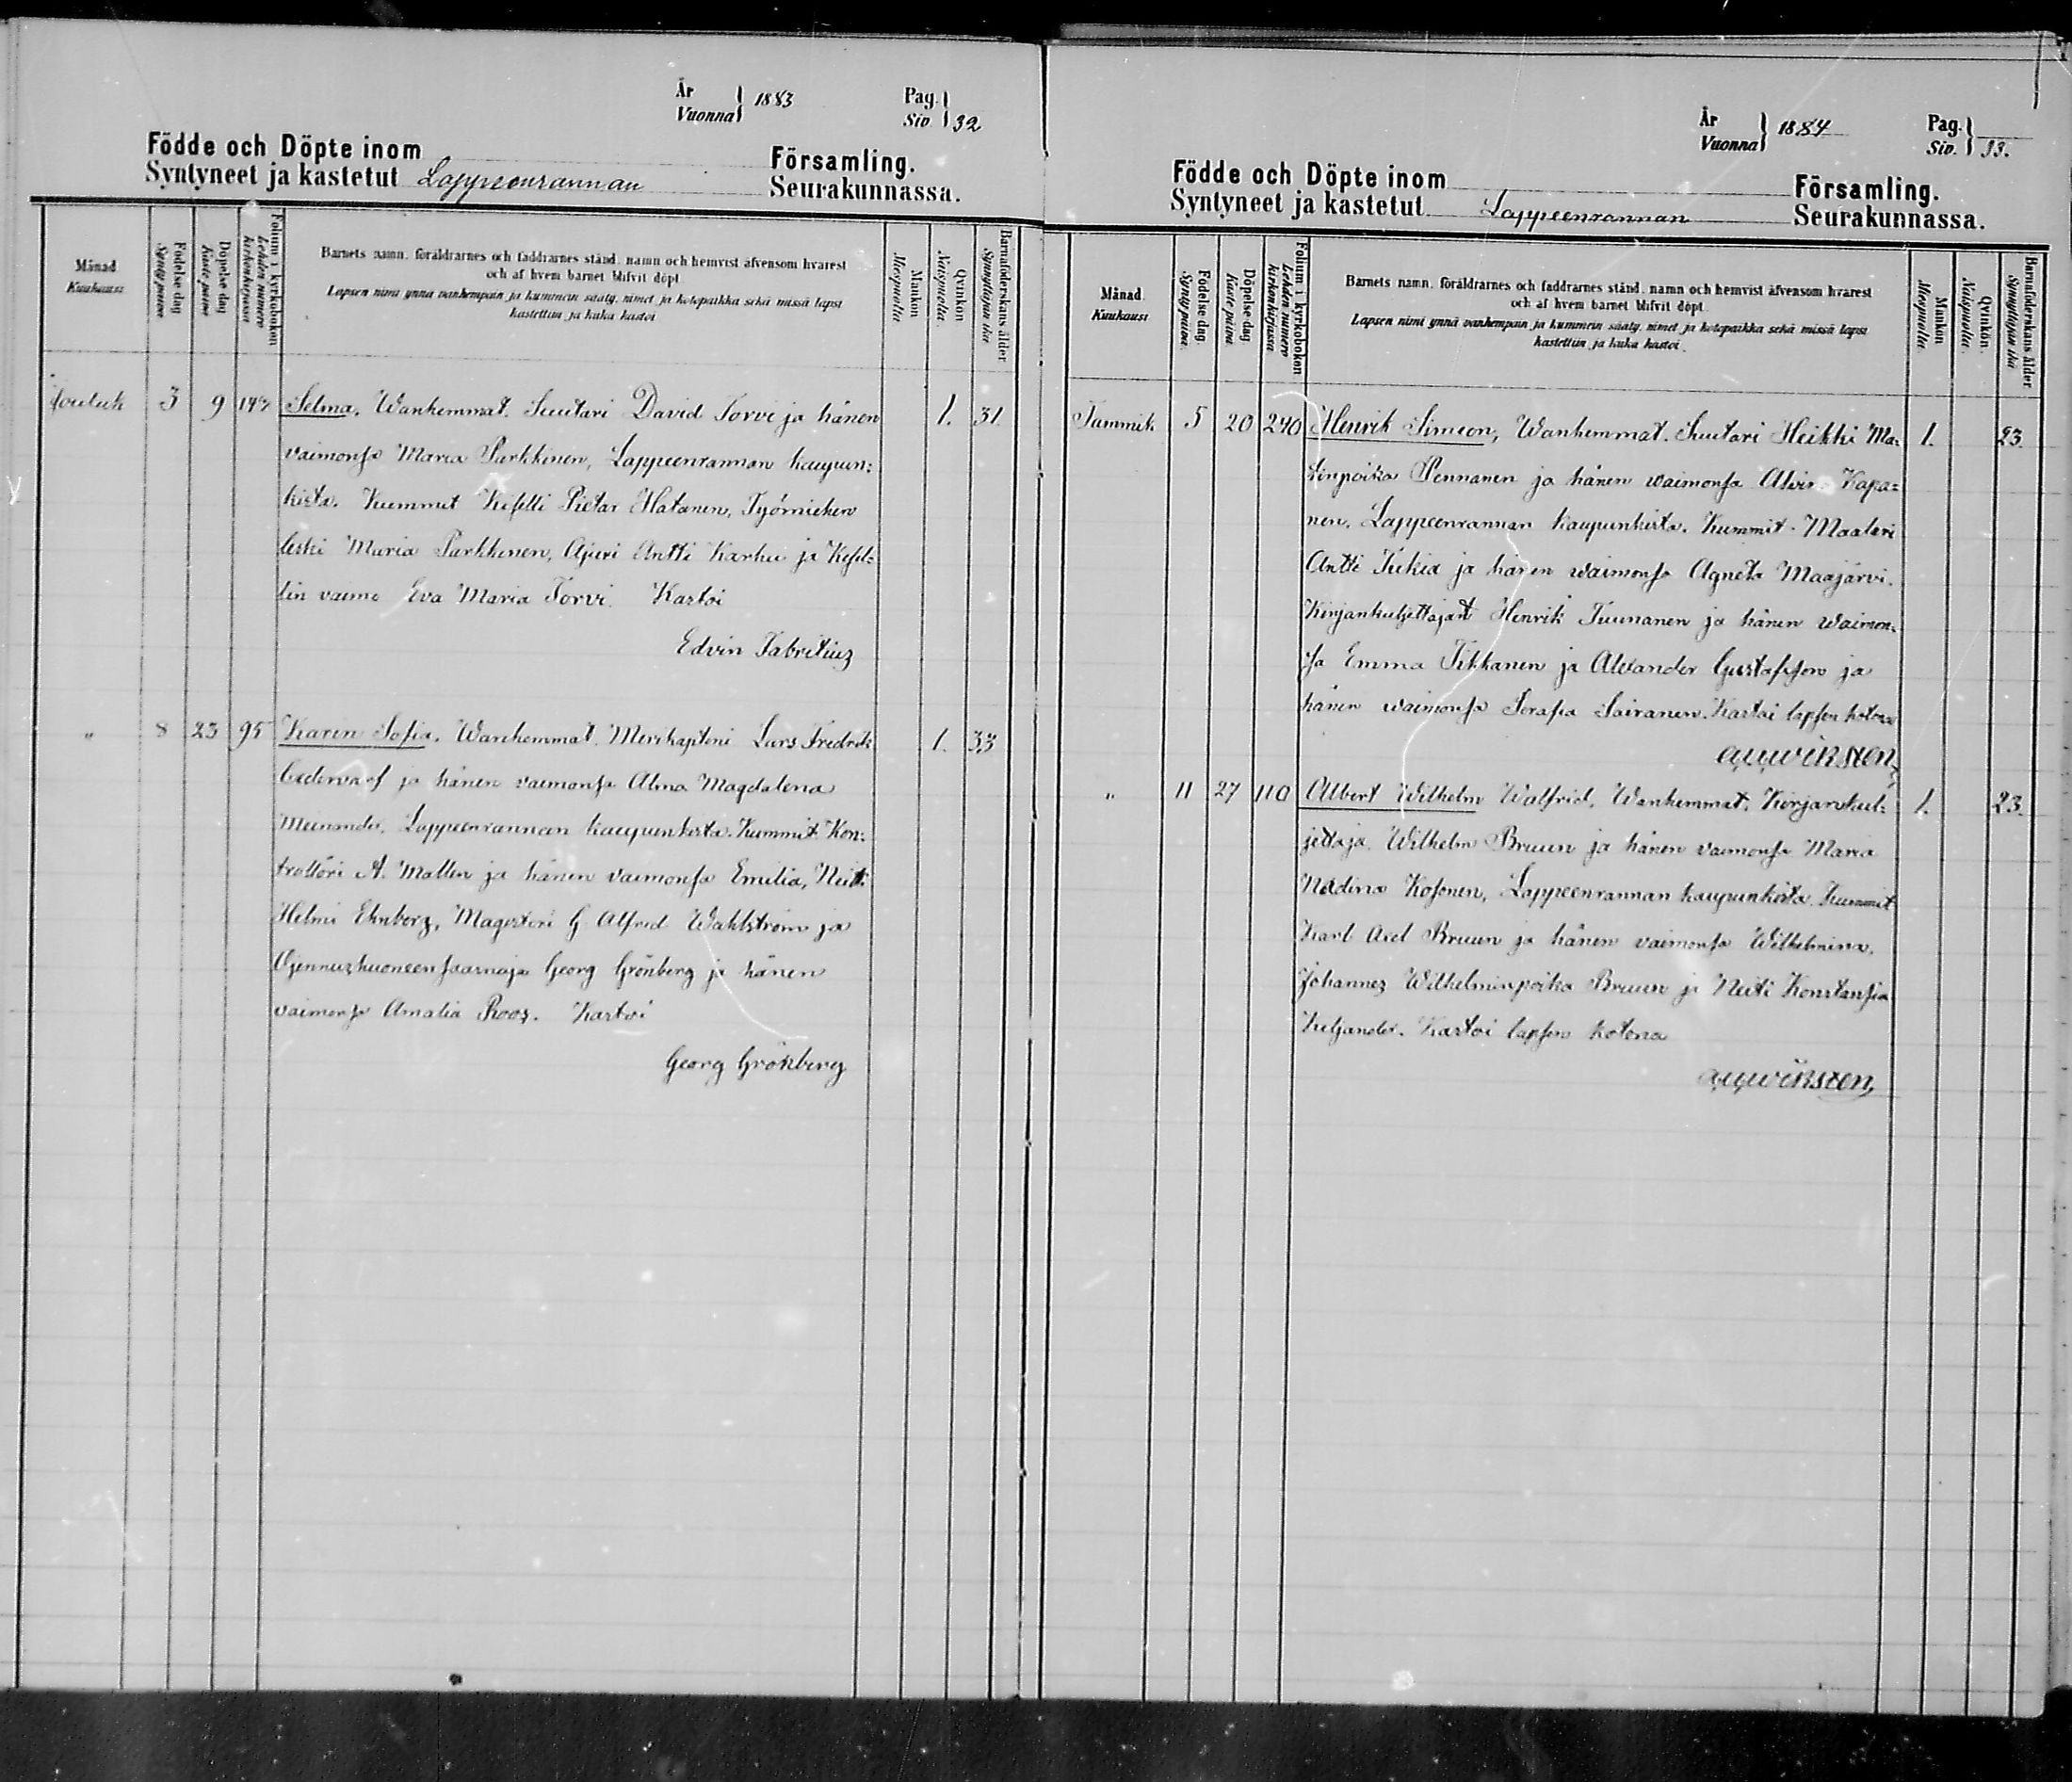 År
Vuonna } 1883
Pag.
Siv. } 32
Födde och Döpte inom
Syntyneet ja kastetut Lappeenrannan
Församling.
Seurakunnassa.
Månad
Kuukausi
Födelse dag
Synty päivä
Döpelse dag
Kaste päivä
Folium i kyrkoboken
Lehden numero
kirkonkirjassa
Barnets namn, föräldrarnes och faddrarnes stånd, namn och hemvist äfvensom hvarest
och af hvem barnet blifvit döpt
Lapsen nimi ynnä vanhempain ja kummein sääty, nimet ja kotopaikka sekä missä lapsi
kastettiin ja kuka kastoi
Mankön
Miespuolia
Qvinkön
Naispuolia
Barnaföderskans ålder
Synnyttäjän ikä
Jouluk 3 9 147 Selma, Wanhemmat. Suutari David Torvi ja hänen 1. 31.
vaimonsa Maria Parkkinen, Lappeenrannan kaupun:
kista. Kummit Kisälli Pietar Hatanen, Työmiehen
leski Maria Parkkinen, Ajuri Antti Karhu ja Kisäl:
lin vaimo Eva Maria Torvi. Kastoi
Edvin Fabritius
" 8 23 95 Karin Sofia. Wanhemmat. Merikapteni Lars Fredrik 1. 33
ja hänen vaimonsa Alma Magdalena
Lappeenrannan kaupunkista. Kummit Kon:
trollöri A. Mallen ja hänen vaimonsa Emilia, Neiti
Helmi Ehnborg, Magisteri G Alfred Wahlström ja
Ojennushuoneensaarnaja Georg Grönberg ja hänen
vaimonsa Amalia Roos. Kastoi
Georg Grönberg
År
Vuonna } 1884
Pag.
Siv. } 33.
Födde och Döpte inom
Syntyneet ja kastetut Lappeenrannan
Församling.
Seurakunnassa.
Månad
Kuukausi
Födelse dag
Synty päivä
Döpelse dag
Kaste päivä
Folium i kyrkoboken
Lehden numero
kirkonkirjassa
Barnets namn, föräldrarnes och faddrarnes stånd, namn och hemvist äfvensom hvarest
och af hvem barnet blifvit döpt
Lapsen nimi ynnä vanhempain ja kummein sääty, nimet ja kotopaikka sekä missä lapsi
kastettiin ja kuka kastoi
Mankön
Miespuolia
Qvinkön
Naispuolia
Barnaföderskans ålder
Synnyttäjän ikä
Tammik. 5 20 240 Henrik Simeon, Wanhemmat. Suutari Heikki Ma: 1. 23.
tinpoika Pennanen ja hänen waimonsa Kapa=
nen, Lappeenrannan kaupunkista. Kummit. Maalari
Antti Tukia ja hänen waimonsa Agneta Maajärvi.
Kirjankuljettajat Henrik Tuunanen ja hänen waimon:
sa Emma Tikkanen ja Alexander Gustafsson ja
hänen waimonsa Serafia Sairanen. Kastoi lapsen kotona
" 11 27 110 Albert Wilhelm Walfrid, Wanhemmat. Kirjankul: 1. 23.
jettaja Wilhelm Bruun ja hänen vaimonsa Maria
Nadina Kosonen, Lappeenrannan kaupunkista. Kummit
Karl Axel Bruun ja hänen vaimonsa Wilhelmina,
Johannes Wilhelminpoika Bruun ja Neiti Konstansia
Kiljander. Kastoi lapsen kotona